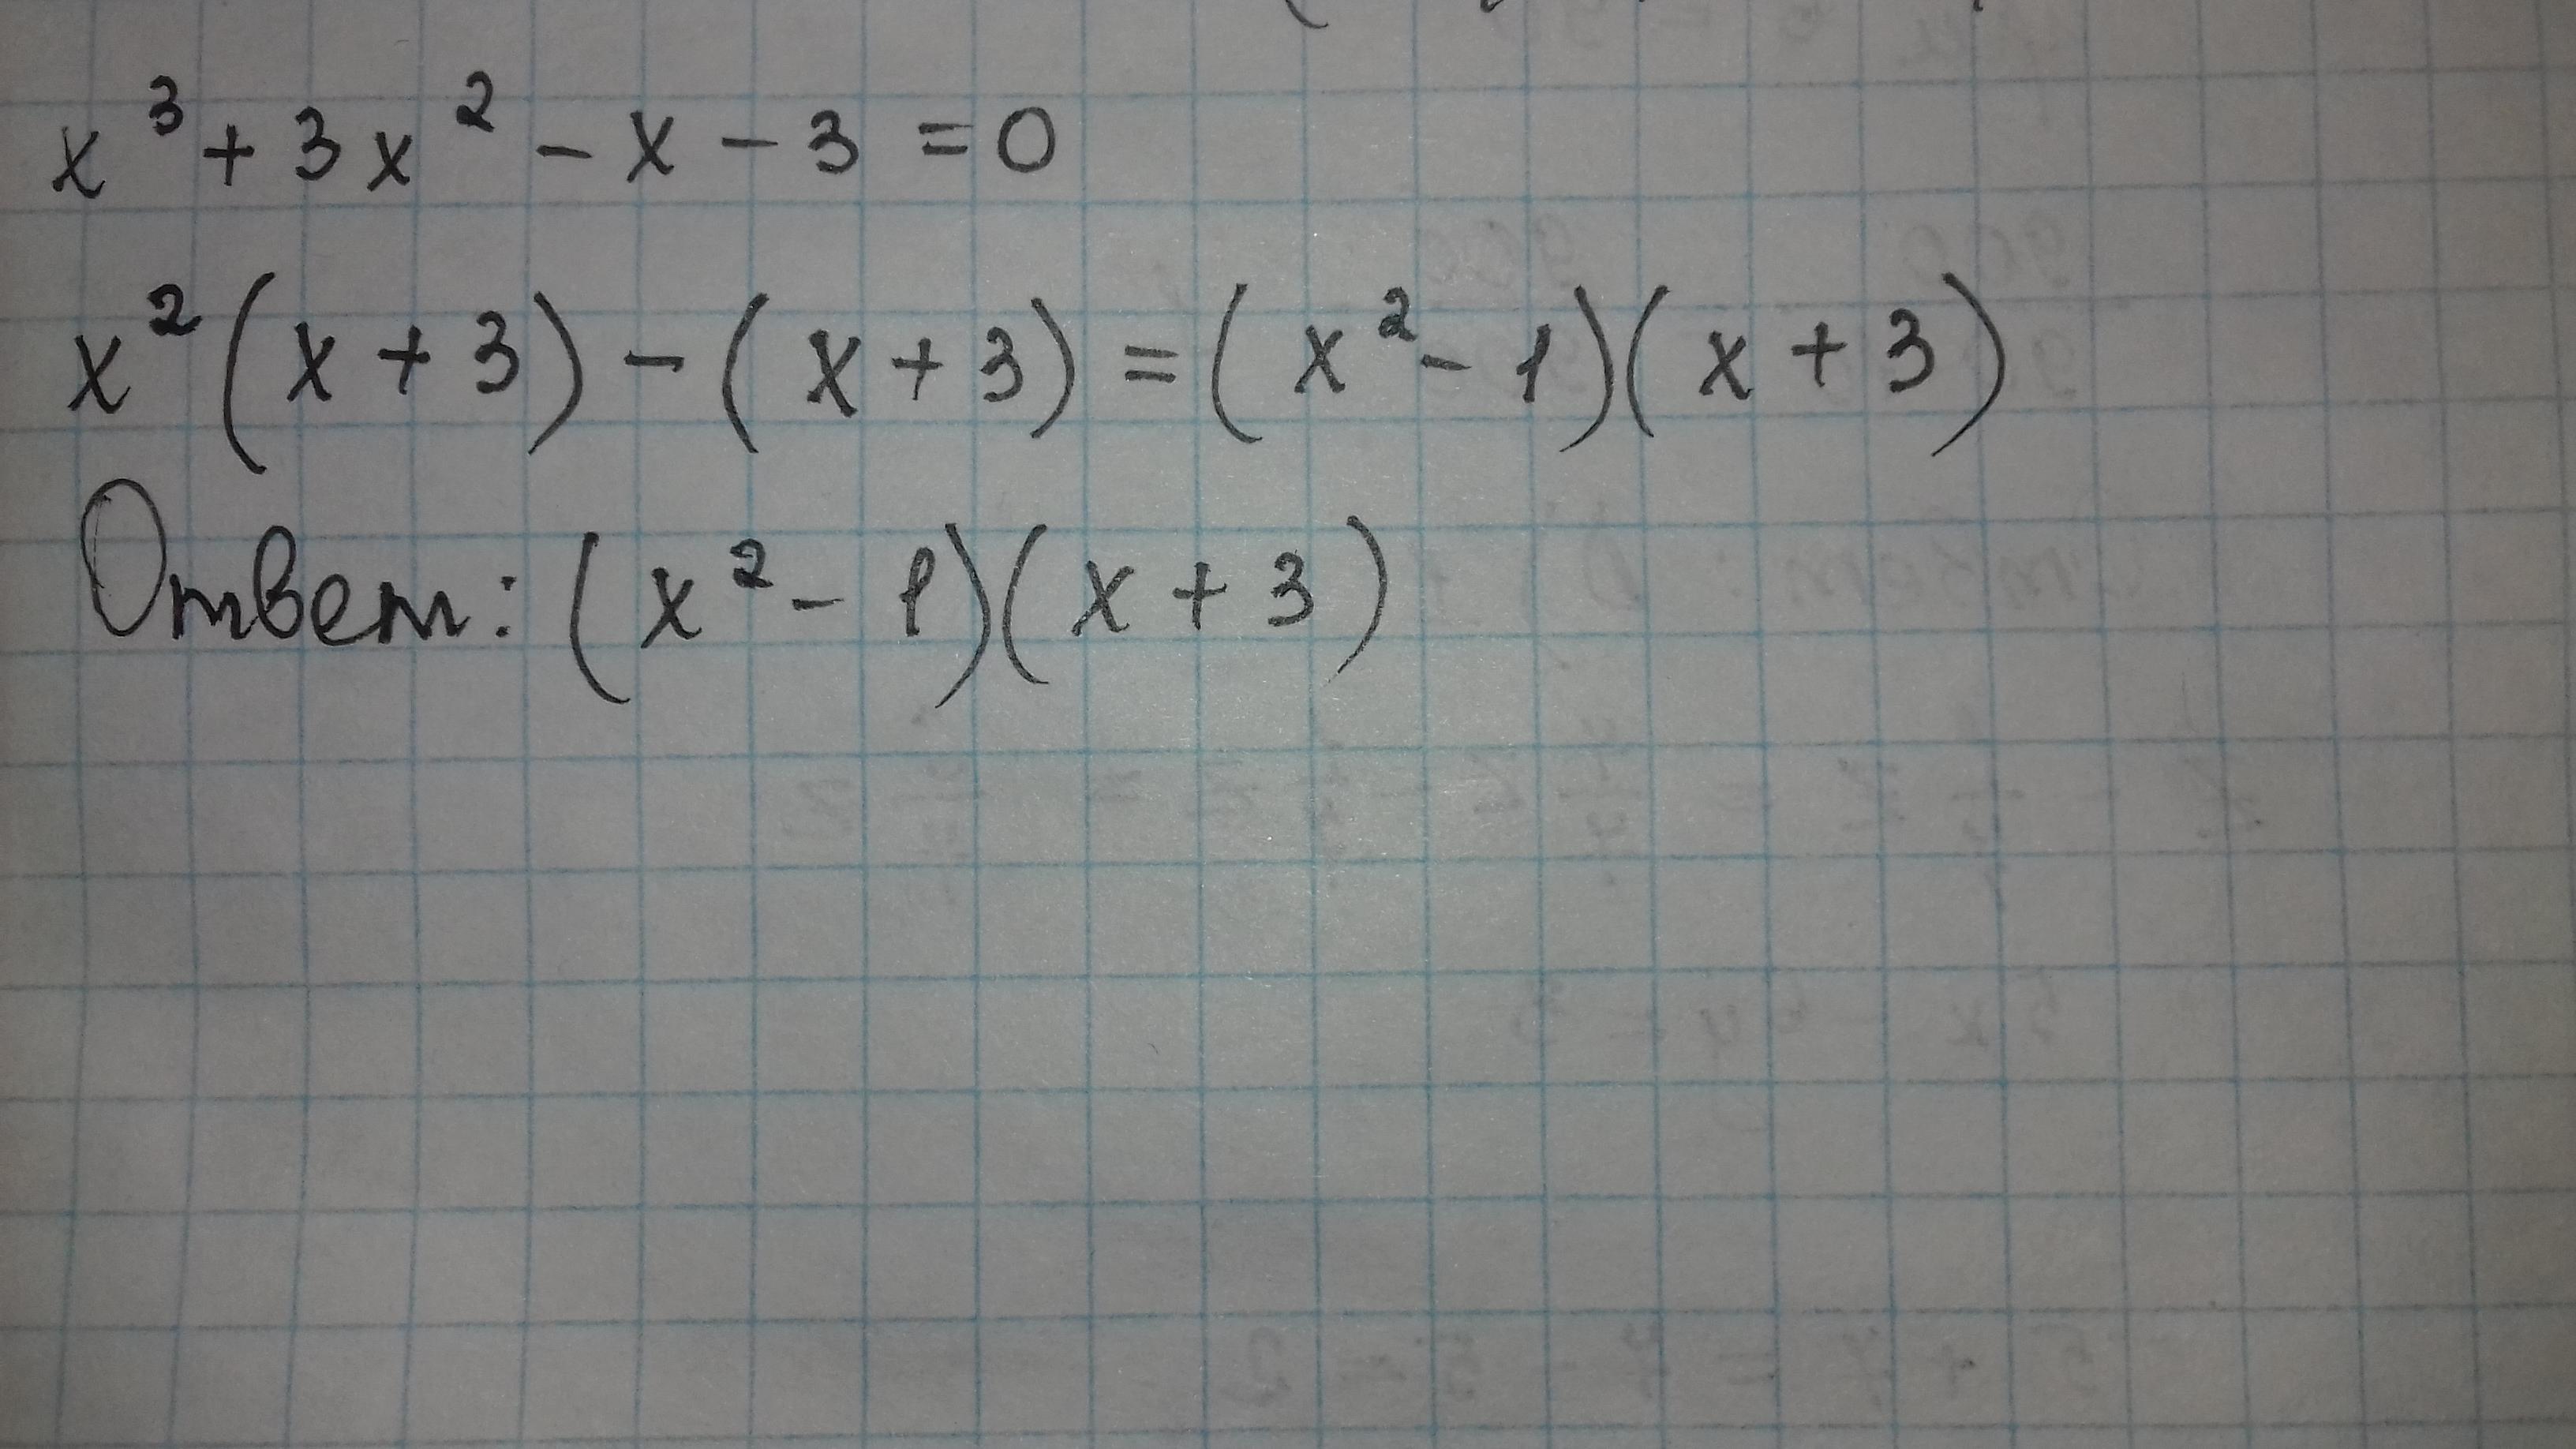 x³ + 3x² - x - 3 = 0
x²(x + 3) - (x + 3) = (x² - 1)(x + 3)
Ответ: (x² - 1)(x + 3)